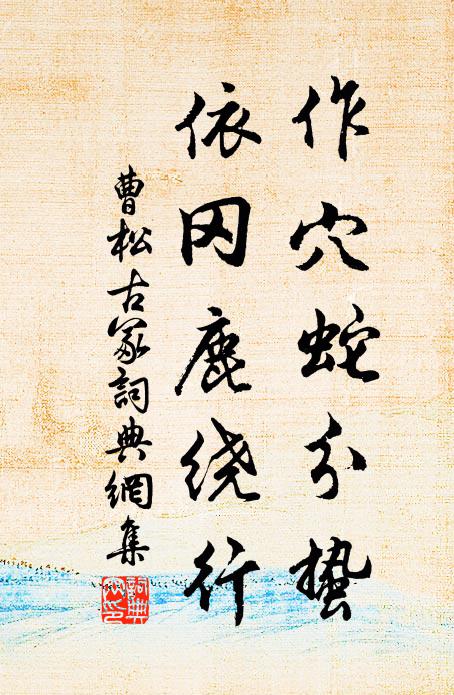 作穴蛇分蛰
依冈鹿绕行
曹松古冢詞典網集